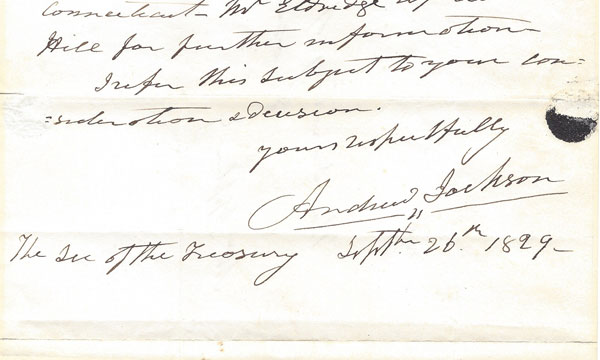 Connecticut - Mr Eldredge
Hill for further information
I refer this subject to your con=
=sideration & decision.
yours respectfully
Andrew Jackson
The Sec of the Treasury Septbr 26th 1829 -